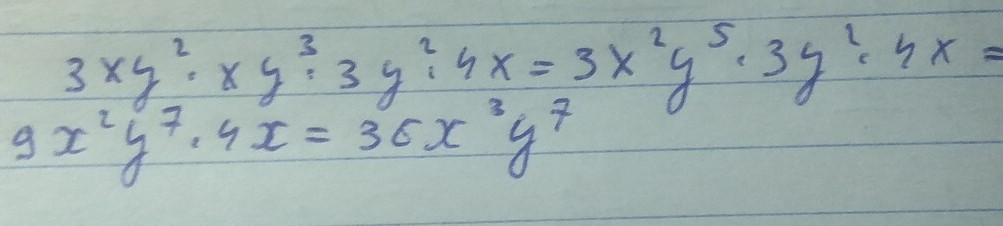 3xy² · xy³ · 3y² · 4x = 3x²y⁵ · 3y² · 4x =
9x²y⁷ · 4x = 36x³y⁷